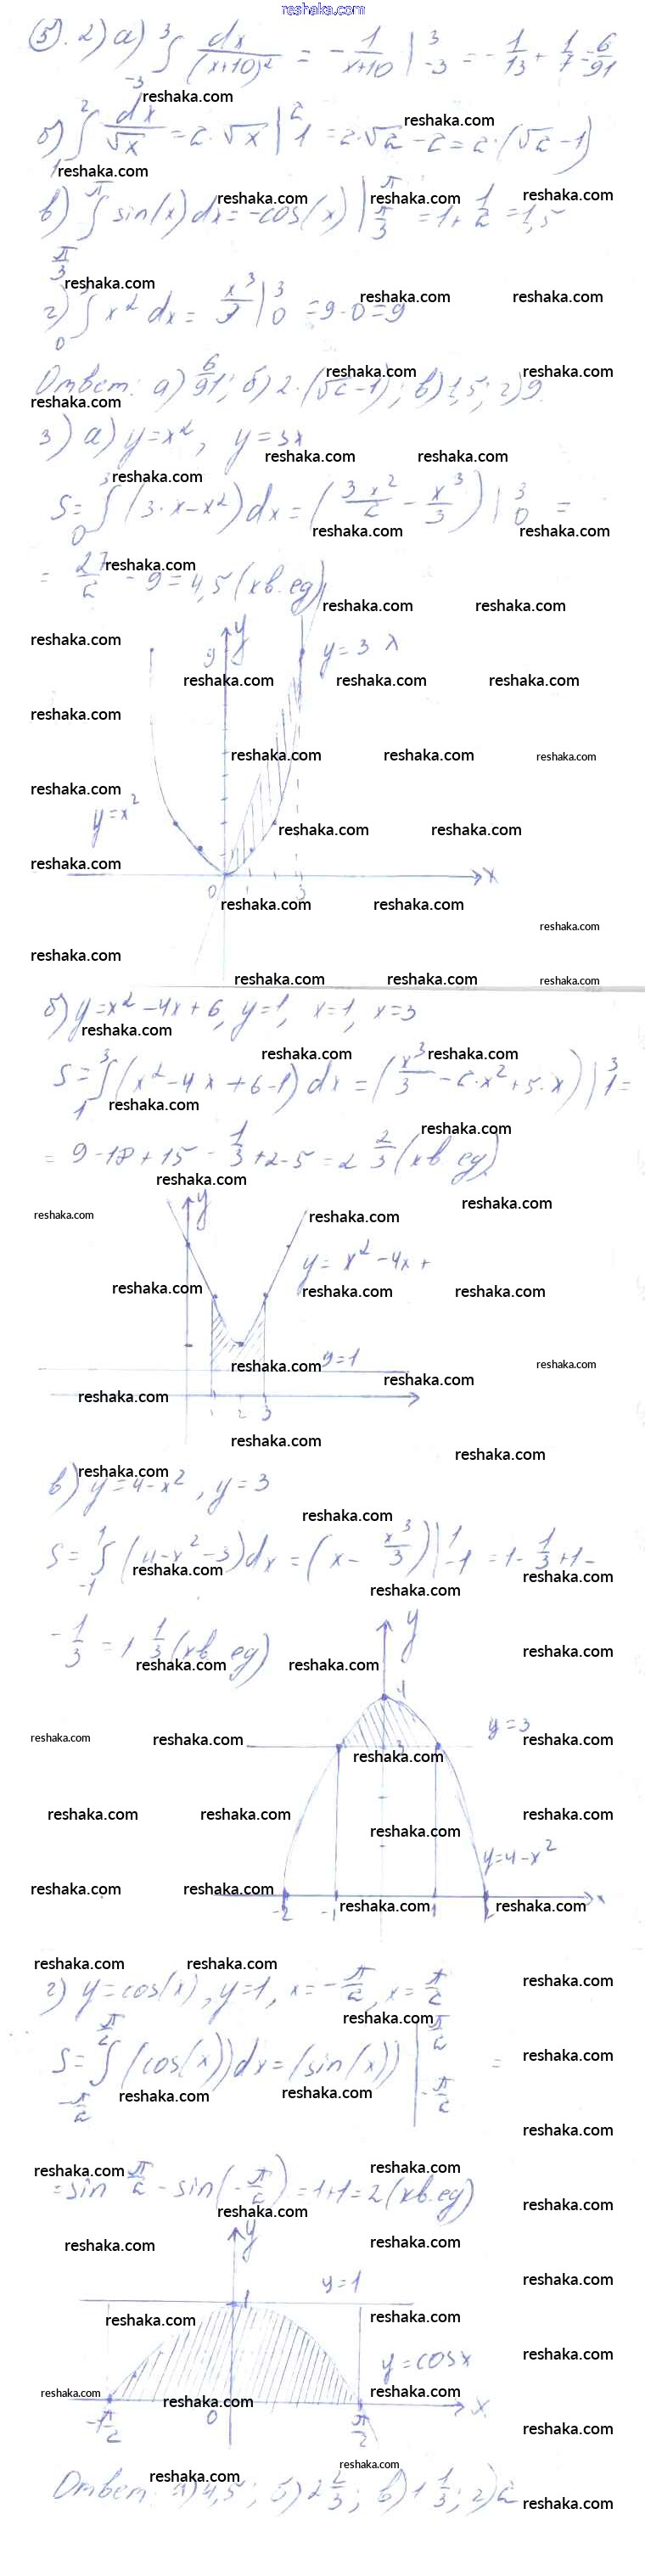 reshaka.com
5. 2) а) ∫₋₃³ dx/(x+10)² = -1/(x+10) |₋₃³ = -1/13 + 1/7 = 6/91
б) ∫₁² dx/√x = 2·√x |₁² = 2·√2 - 2 = 2·(√2-1)
в) ∫_{π/3}^{π} sin(x) dx = -cos(x) |_{π/3}^{π} = 1 + 1/2 = 1,5
г) ∫₀³ x² dx = x³/3 |₀³ = 9-0 = 9
Ответ: а) 6/91; б) 2·(√2-1); в) 1,5; г) 9.
3) а) y=x², y=3x
S = ∫₀³ (3·x-x²) dx = (3x²/2 - x³/3) |₀³ =
= 27/2 - 9 = 4,5 (кв. ед)
y
9
y=3x
y=x²
0 1 3 x
б) y=x²-4x+6, y=1, x=1, x=3
S = ∫₁³ (x²-4x+6-1) dx = (x³/3 - 2·x²+5·x) |₁³ =
= 9-18+15 - 1/3 + 2-5 = 2 2/3 (кв ед)
y
y = x²-4x+
y=1
1 2 3
в) y=4-x², y=3
S = ∫₋₁¹ (4-x²-3) dx = (x - x³/3) |₋₁¹ = 1 - 1/3 + 1 -
- 1/3 = 1 1/3 (кв ед)
y
4
y=3
3
y=4-x²
-2 -1 1 2 x
г) y=cos(x), y=1, x=-π/2, x=π/2
S = ∫_{-π/2}^{π/2} (cos(x)) dx = (sin(x)) |_{-π/2}^{π/2} =
= sin π/2 - sin(-π/2) = 1+1 = 2 (кв. ед)
y
y=1
1
y=cosx
-π/2 0 π/2 x
Ответ: а) 4,5; б) 2 2/3; в) 1 1/3; г) 2